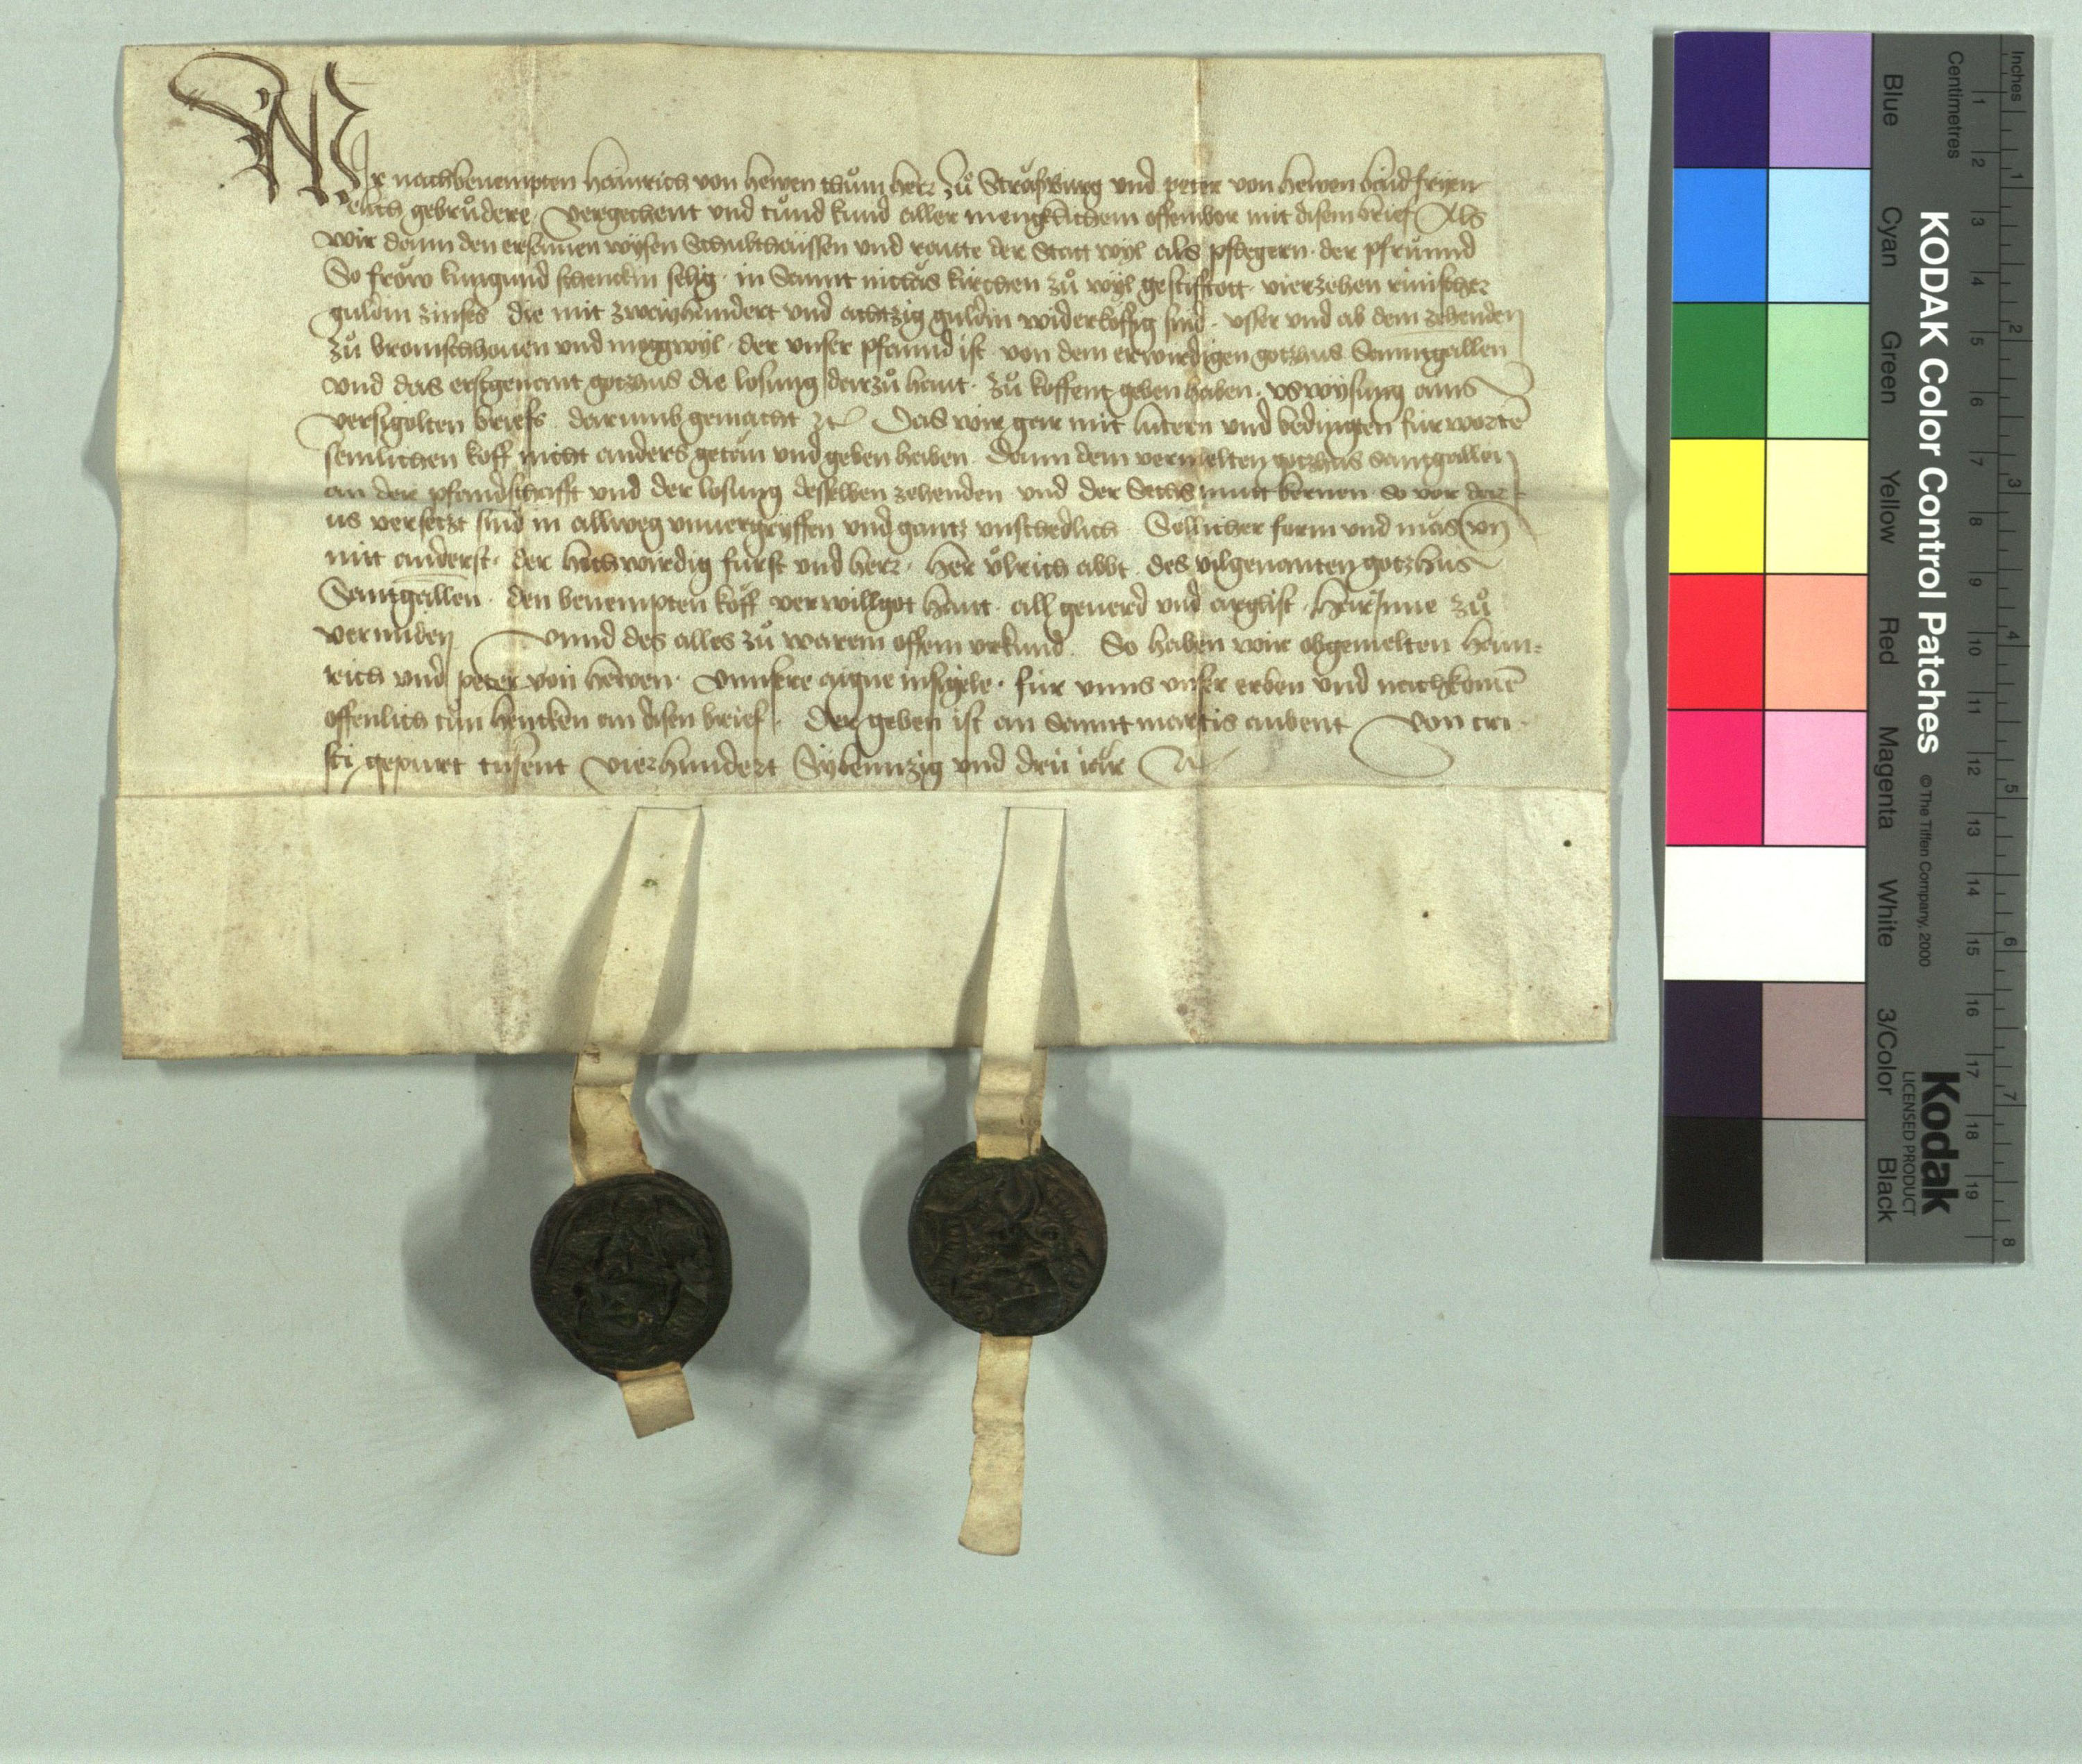 Wir nachbenempten hainrich von hewen thůmherr zů Straßburg und peter von hewen baid fryen
elich gebrůdere vergechent und tůnd kund aller mengklichem offembar mit disem brief Als
wir dann den ersamen wysen Schulthaissen und raute der Statt wyl als pflegern der pfrůnnd
So frow küngund schenckin selig in Sannt niclas kirchen zů wyl gestifftott vierzehen rinischer
guldin zinses die mit zwayhundert und achtzig guldin widerköffig sind usser und ab dem zehenden
zů bromschhouen und moggwyl der unser pfannd ist von dem erwirdigen gotzhus Sanntgallen
und das erstgenant gotzhus die losung darzů haut zů koffent geben haben uswysung ains
versigolten briefs darumb gemacht etc Das wir gar mit lutern und bedingten fürworten
semlichen koff nicht anders getan und geben haben dann dem vermelten gotzhus santgallen
an der pfandschafft und der losung desselben zehenden und der Sechs mutt kernen so vor dar
us versetzt sind in allweg unuergryffen und gantz unschedlich Söllicher form und mas un
nit anderst der hochwirdig fürst und herr her ůlrich abbt des vilgenanten gotzhus
Santgallen den benempten koff verwillgot haut all geuerd und arglist hierjnne zů
vermiden Unnd des alles zů warem offem urkund So haben wir obgemelten hain-
rich und peter von hewen unnsere aigne insigele für unns unser erben und nachkomen
offenlich tůn hencken an disen brief Der geben ist an Sannt martis aubent von cri
sti gepurt tusent vierhundert Sybenntzig und drü jar etc
KODAK Color Control Patches
© The Tiffen Company, 2000
Kodak
LICENSED PRODUCT
Blue Cyan Green Yellow Red Magenta White 3/Color Black
Inches 1 2 3 4 5 6 7 8
Centimetres 1 2 3 4 5 6 7 8 9 10 11 12 13 14 15 16 17 18 19